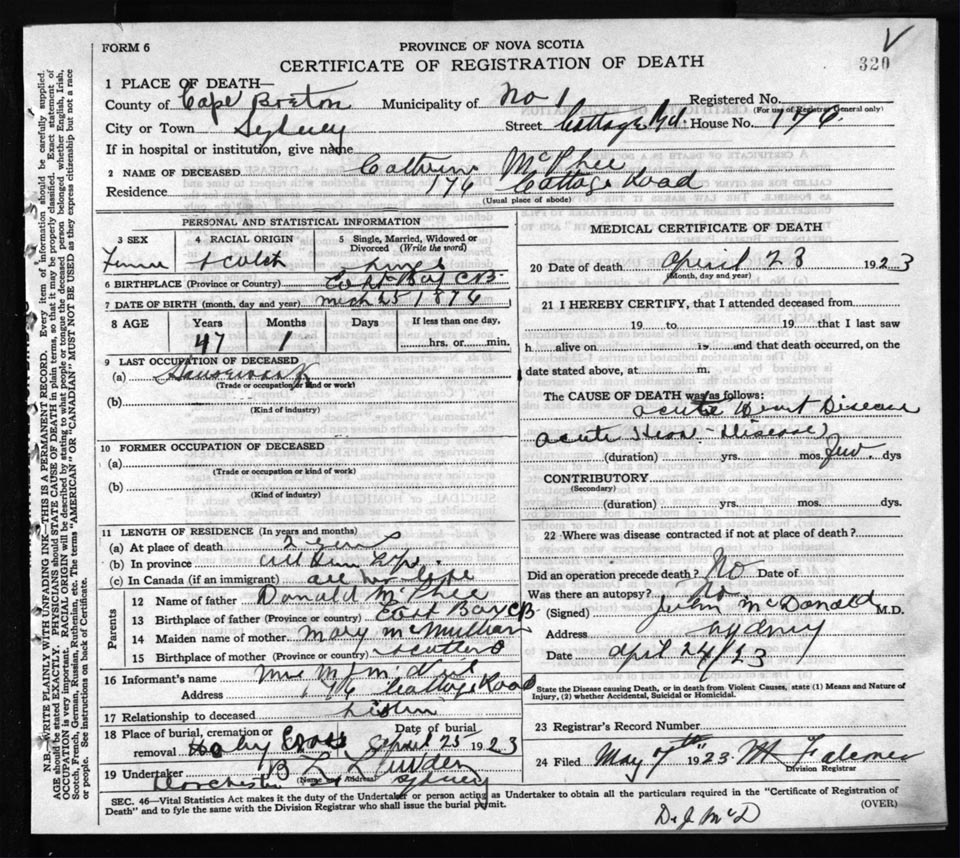 FORM 6
PROVINCE OF NOVA SCOTIA
CERTIFICATE OF REGISTRATION OF DEATH
320
1 PLACE OF DEATH—
County of Cape Breton Municipality of No 1 Registered No.
(For use of Registrar General only)
City or Town Sydney Street Cottage Rd. House No. 176
If in hospital or institution, give name
2 NAME OF DECEASED McPhee
Residence 176 Cottage Road
(Usual place of abode)
PERSONAL AND STATISTICAL INFORMATION
3 SEX
4 RACIAL ORIGIN Scotch
5 Single, Married, Widowed or Divorced (Write the word)
6 BIRTHPLACE (Province or Country) East Bay CB
7 DATE OF BIRTH (month, day and year) 1876
8 AGE Years Months Days If less than one day,
47 1 hrs. or min.
9 LAST OCCUPATION OF DECEASED
(a) Housework
(Trade or occupation or kind or work)
(b)
(Kind of industry)
10 FORMER OCCUPATION OF DECEASED
(a)
(Trade or occupation or kind of work)
(b)
(Kind of industry)
11 LENGTH OF RESIDENCE (In years and months)
(a) At place of death
(b) In province all her life
(c) In Canada (if an immigrant) all her life
Parents
12 Name of father Donald McPhee
13 Birthplace of father (Province or country) East Bay CB
14 Maiden name of mother Mary McMullian
15 Birthplace of mother (Province or country)
16 Informant's name Mrs M J
Address 176 Cottage Road
17 Relationship to deceased Sister
18 Place of burial, cremation or removal Holy Cross Date of burial April 25 1923
19 Undertaker
(Name and Address)
Dorchester St Sydney
MEDICAL CERTIFICATE OF DEATH
20 Date of death April 23 1923
(Month, day and year)
21 I HEREBY CERTIFY, that I attended deceased from
19 to 19 that I last saw
h alive on 19 and that death occurred, on the
date stated above, at m.
The CAUSE OF DEATH was as follows:
acute Heart Disease
acute Heart Disease
(duration) yrs. mos. few dys
CONTRIBUTORY
(Secondary)
(duration) yrs. mos. dys.
22 Where was disease contracted if not at place of death?
Did an operation precede death? No Date of
Was there an autopsy? No
(Signed) John McDonald M.D.
Address Sydney
Date April 24/23
State the Disease causing Death, or in death from Violent Causes, state (1) Means and Nature of Injury, (2) whether Accidental, Suicidal or Homicidal.
23 Registrar's Record Number
24 Filed May 7th 1923
Division Registrar
SEC. 46—Vital Statistics Act makes it the duty of the Undertaker or person acting as Undertaker to obtain all the particulars required in the "Certificate of Registration of
Death" and to fyle the same with the Division Registrar who shall issue the burial permit.
(OVER)
D. J. McD
N.B.—WRITE PLAINLY WITH UNFADING INK—THIS IS A PERMANENT RECORD. Every item of information should be carefully supplied.
AGE should be stated EXACTLY. PHYSICIANS should STATE CAUSE OF DEATH in plain terms, so that it may be properly classified. Exact statement of
OCCUPATION is very important. RACIAL ORIGIN will be described by stating to what people or tongue the deceased person belonged whether English, Irish,
Scotch, French, German, Russian, Ruthenian, etc. The terms "AMERICAN" OR "CANADIAN" MUST NOT BE USED as they express citizenship but not a race
or people. See instructions on back of Certificate.